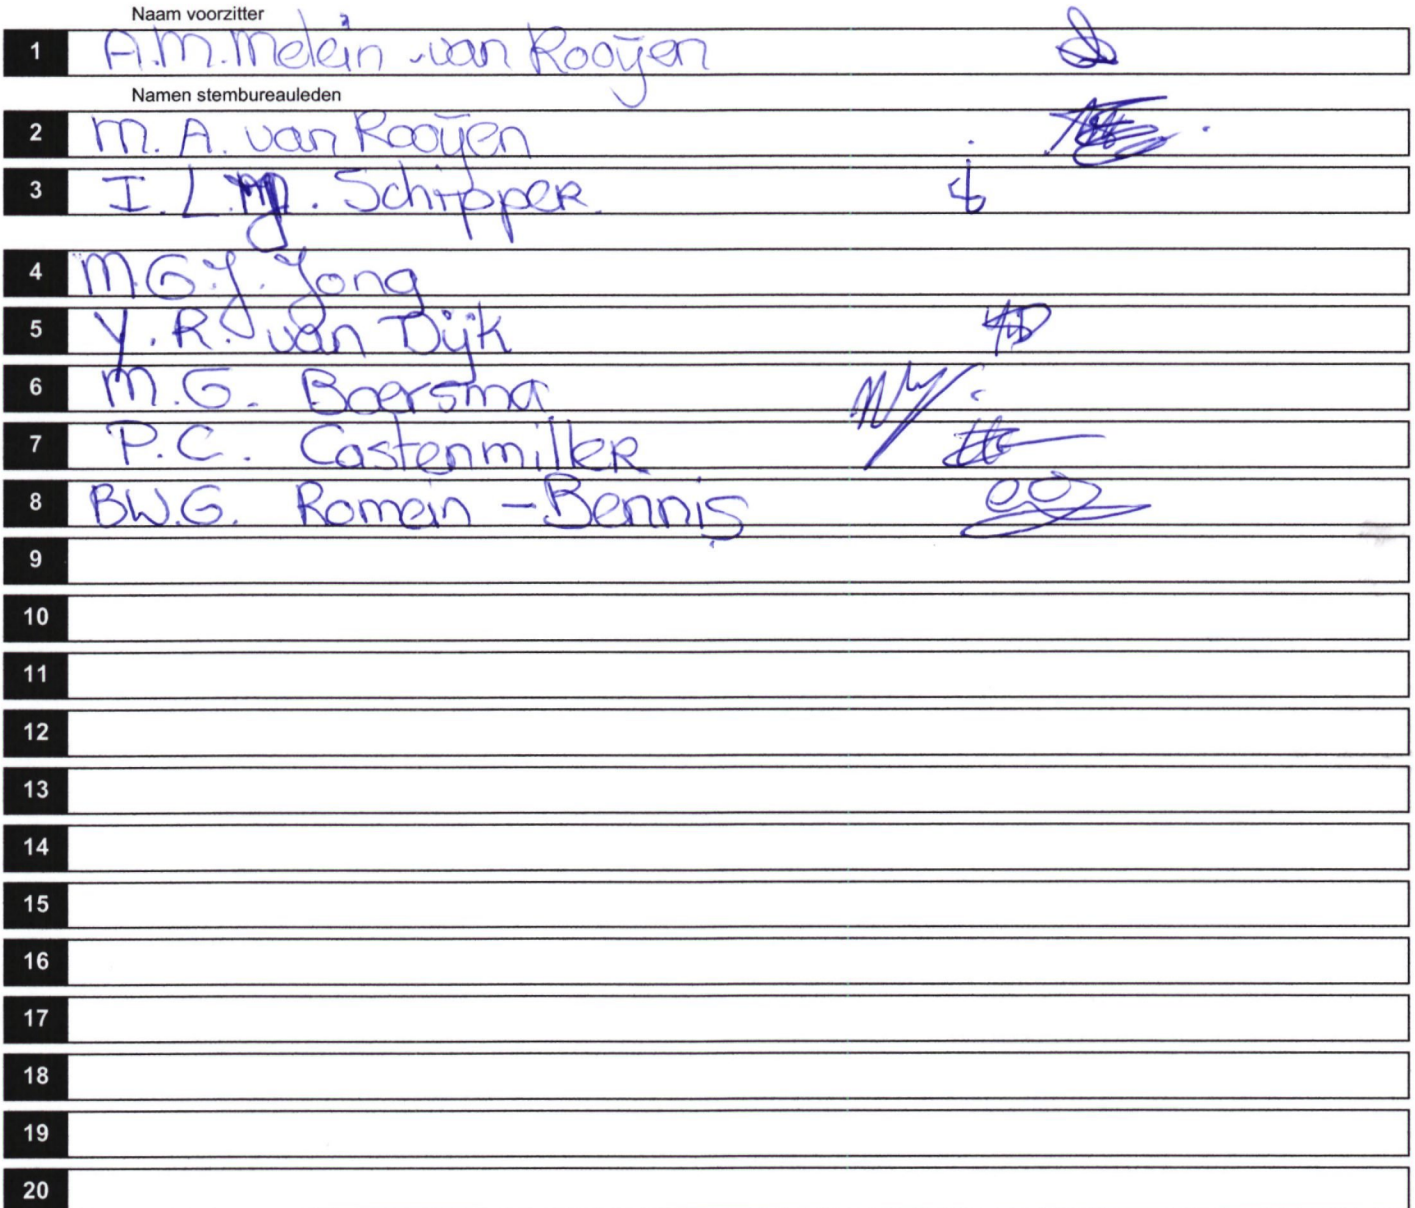 Naam voorzitter
1 A.M. Melein - van Rooijen
Namen stembureauleden
2 M. A. van Rooijen
3 I. L. M. Schipper
4 M.G.J. Jong
5 Y. R. van Dijk
6 M. G. Boersma
7 P.C. Castenmiller
8 B.W.G. Romein - Bennis
9
10
11
12
13
14
15
16
17
18
19
20